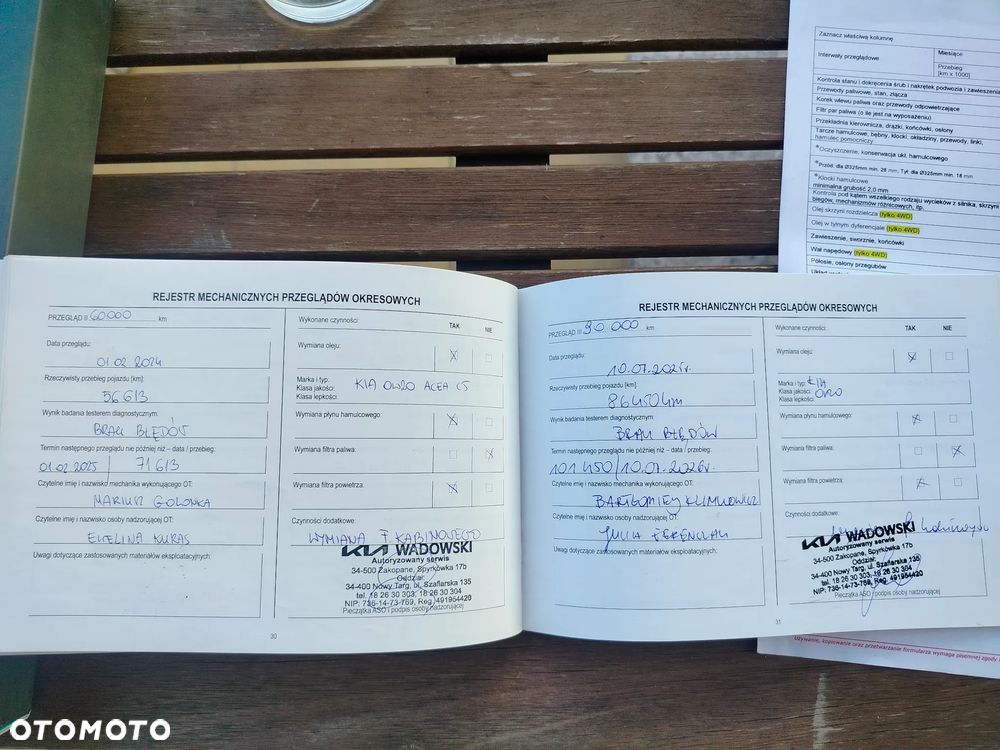 Zaznacz właściwą kolumnę
Interwały przeglądowe
Miesiące
Przebieg
[km x 1000]
Kontrola stanu i dokręcenia śrub i nakrętek podwozia i zawieszenia
Przewody paliwowe, stan, złącza
Korek wlewu paliwa oraz przewody odpowietrzające
Filtr par paliwa (o ile jest na wyposażeniu)
Przekładnia kierownicza, drążki, końcówki, osłony
Tarcze hamulcowe, bębny, klocki, okładziny, przewody, linki,
hamulec pomocniczy
*Oczyszczenie, konserwacja ukł. hamulcowego
*Przód: dla Ø325mm min. 28 mm, Tył: dla Ø325mm min. 18 mm
*Klocki hamulcowe
minimalna grubość 2,0 mm
Kontrola pod kątem wszelkiego rodzaju wycieków z silnika, skrzyni
biegów, mechanizmów różnicowych, itp.
Olej skrzyni rozdzielcza (tylko 4WD)
Olej w tylnym dyferencjale (tylko 4WD)
Zawieszenie, sworznie, końcówki
Wał napędowy (tylko 4WD)
Półosie, osłony przegubów
REJESTR MECHANICZNYCH PRZEGLĄDÓW OKRESOWYCH
PRZEGLĄD II 60.000 km
Data przeglądu:
01.02.2024
Rzeczywisty przebieg pojazdu [km]:
56613
Wynik badania testerem diagnostycznym:
BRAK BŁĘDÓW
Termin następnego przeglądu nie później niż – data / przebieg:
01.02.2025 71613
Czytelne imię i nazwisko mechanika wykonującego OT:
MARIUSZ GOLONKA
Czytelne imię i nazwisko osoby nadzorującej OT:
EWELINA KURAS
Uwagi dotyczące zastosowanych materiałów eksploatacyjnych:
Wykonane czynności:
TAK NIE
Wymiana oleju:
X
Marka i typ:
Klasa jakości:
Klasa lepkości:
KIA OW20 ACEA C5
Wymiana płynu hamulcowego:
X
Wymiana filtra paliwa:
X
Wymiana filtra powietrza:
X
Czynności dodatkowe:
WYMIANA F KABINOWEGO
KIA WADOWSKI
Autoryzowany serwis
34-500 Zakopane, Spyrkówka 17b
Oddział:
34-400 Nowy Targ, ul. Szaflarska 135
tel. 18 26 30 303, 18 26 30 304
NIP: 736-14-73-769, Reg. 491954420
Pieczątka ASO i podpis osoby nadzorującej
30
REJESTR MECHANICZNYCH PRZEGLĄDÓW OKRESOWYCH
PRZEGLĄD III 90 000 km
Data przeglądu:
10.07.2025r.
Rzeczywisty przebieg pojazdu [km]:
86450km
Wynik badania testerem diagnostycznym:
BRAK BŁĘDÓW
Termin następnego przeglądu nie później niż – data / przebieg:
101 450/10.07.2026r.
Czytelne imię i nazwisko mechanika wykonującego OT:
BARTŁOMIEJ
Czytelne imię i nazwisko osoby nadzorującej OT:
JULIA
Uwagi dotyczące zastosowanych materiałów eksploatacyjnych:
Wykonane czynności:
TAK NIE
Wymiana oleju:
X
Marka i typ: KIA
Klasa jakości: OW20
Klasa lepkości:
Wymiana płynu hamulcowego:
X
Wymiana filtra paliwa:
X
Wymiana filtra powietrza:
X
Czynności dodatkowe:
KIA WADOWSKI
Autoryzowany serwis
34-500 Zakopane, Spyrkówka 17b
Oddział:
34-400 Nowy Targ, ul. Szaflarska 135
tel. 18 26 30 303, 18 26 30 304
NIP: 736-14-73-769, Reg. 491954420
Pieczątka ASO i podpis osoby nadzorującej
31
Używanie, kopiowanie oraz przetwarzanie formularza wymaga pisemnej zgody
OTOMOTO